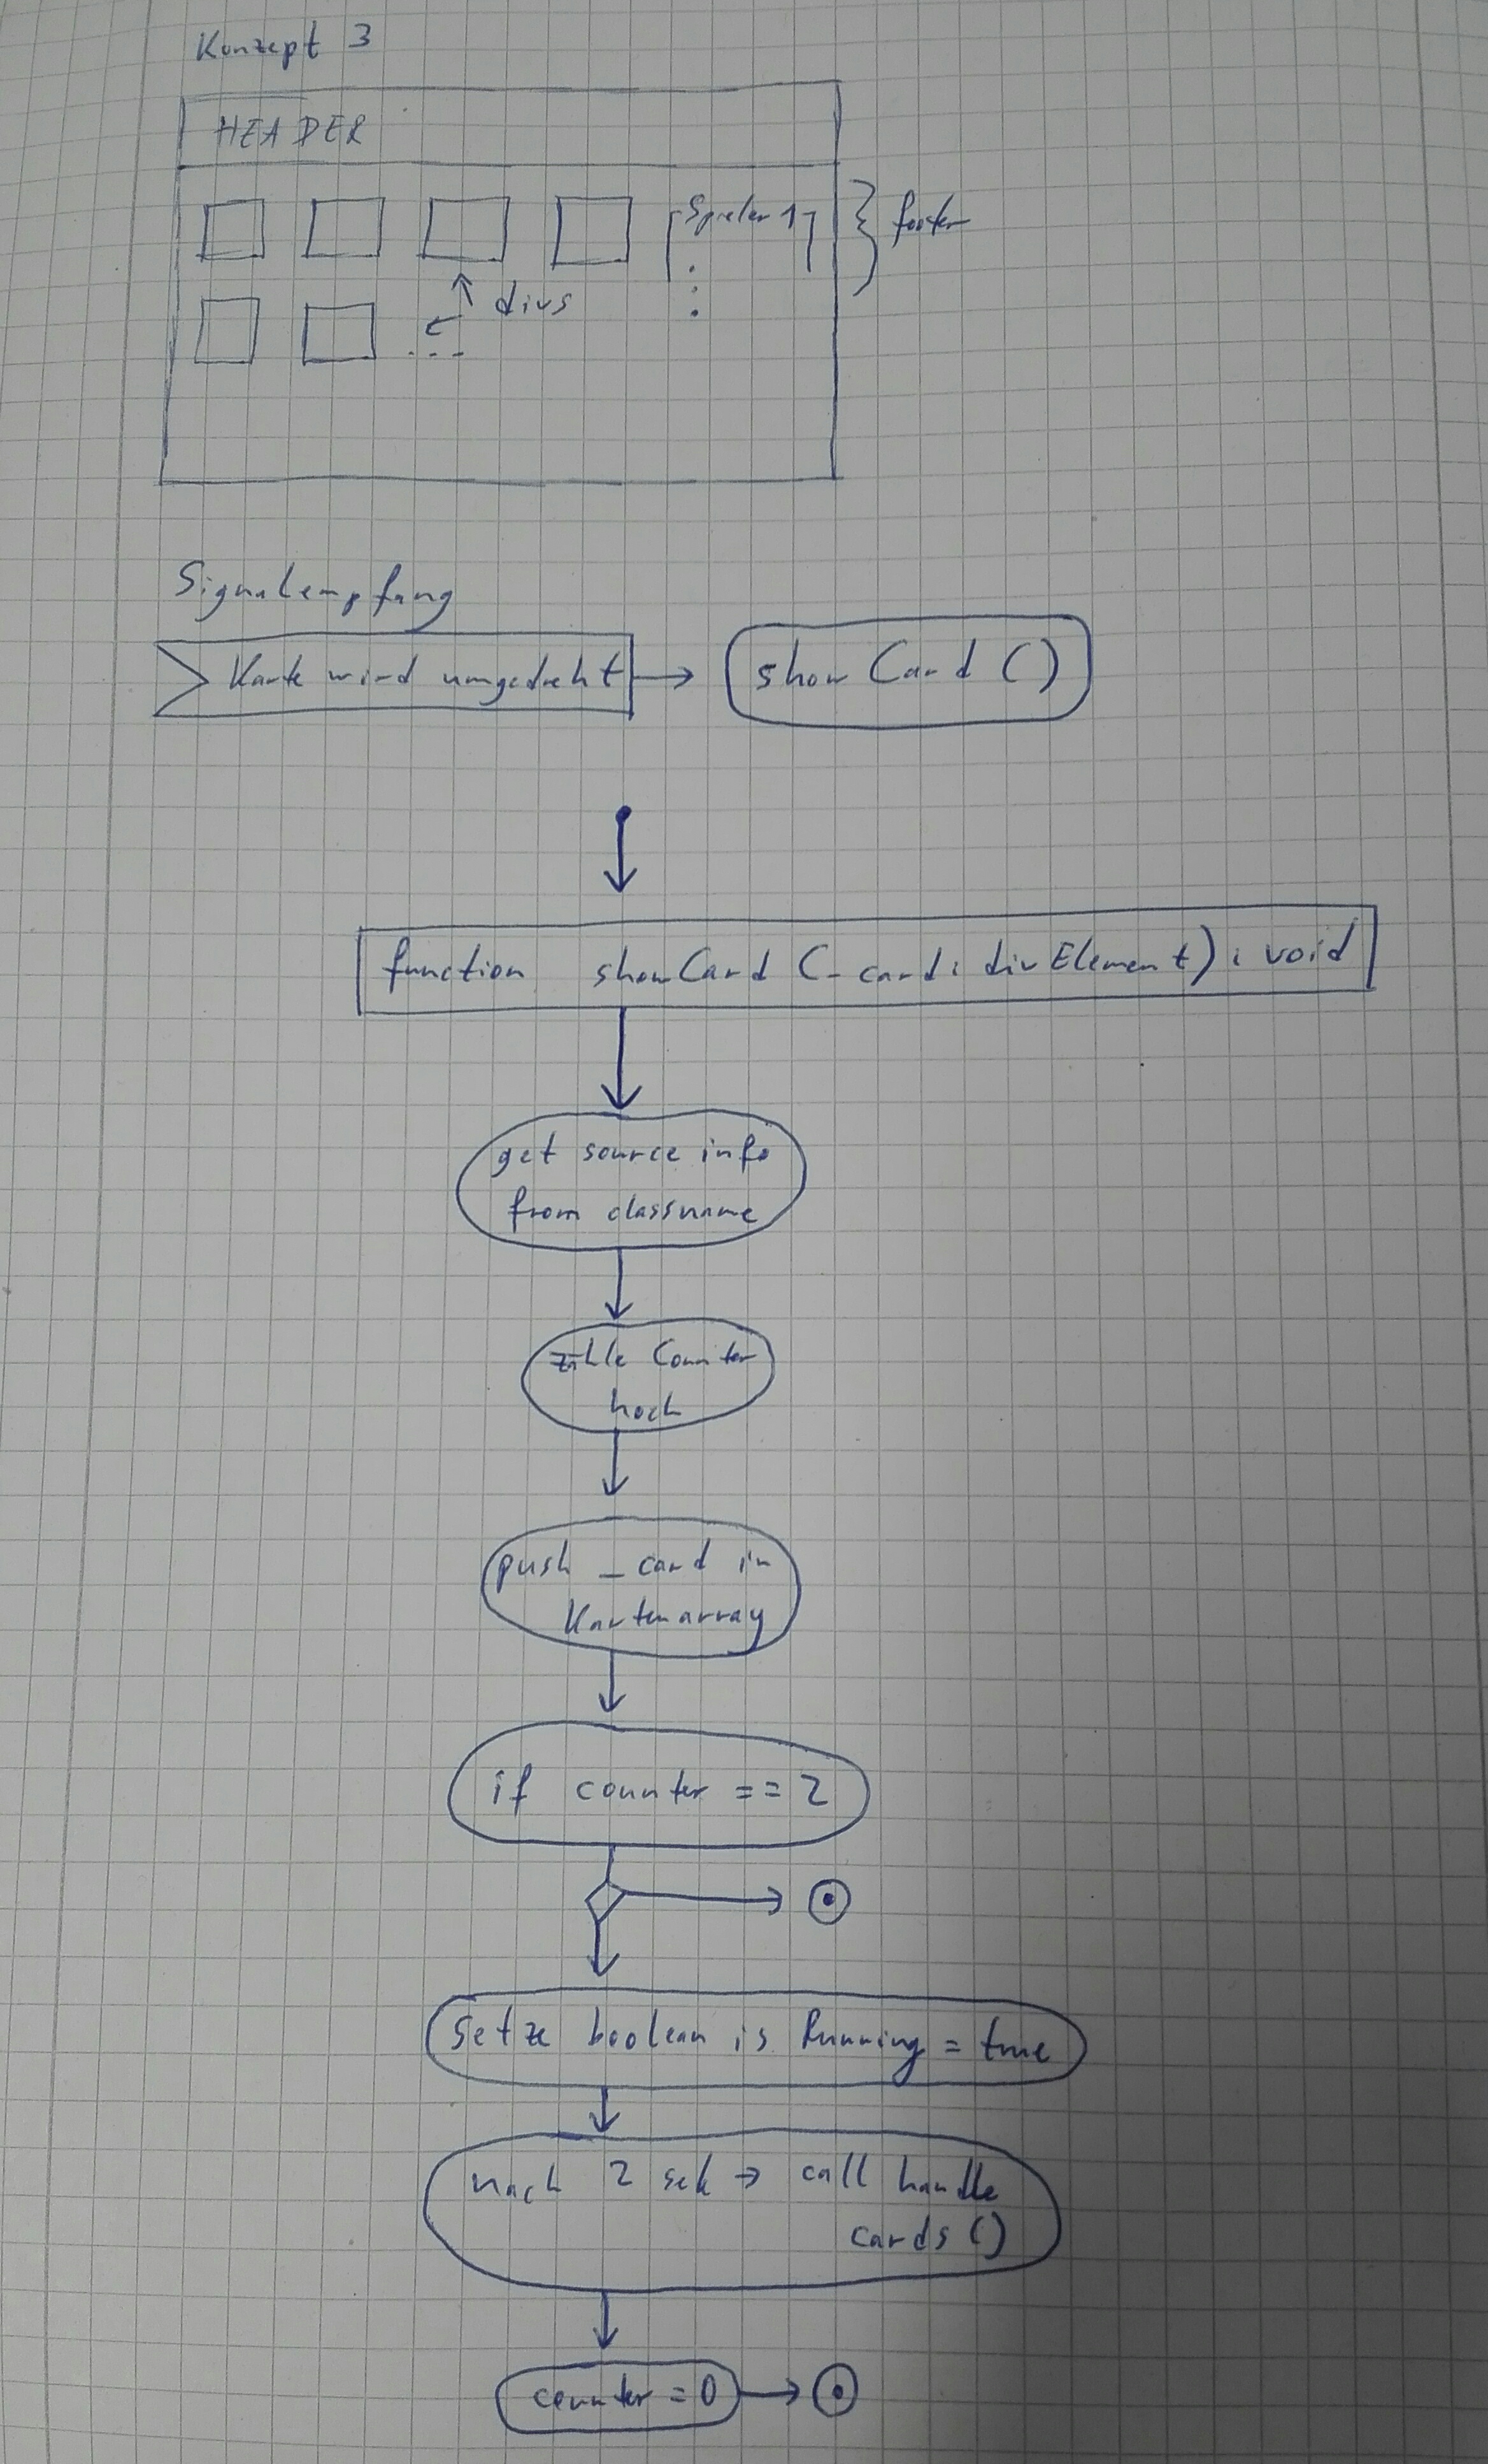 Konzept 3
HEADER
Spieler 1
footer
divs
Signalempfang
Karte wird umgedreht → showCard ()
function showCard (_card: divElement): void
get source info
from classname
zähle Counter
hoch
push _card in
Kartenarray
if counter == 2
setze boolean is Running = true
nach 2 sek → call handle
cards ()
counter = 0